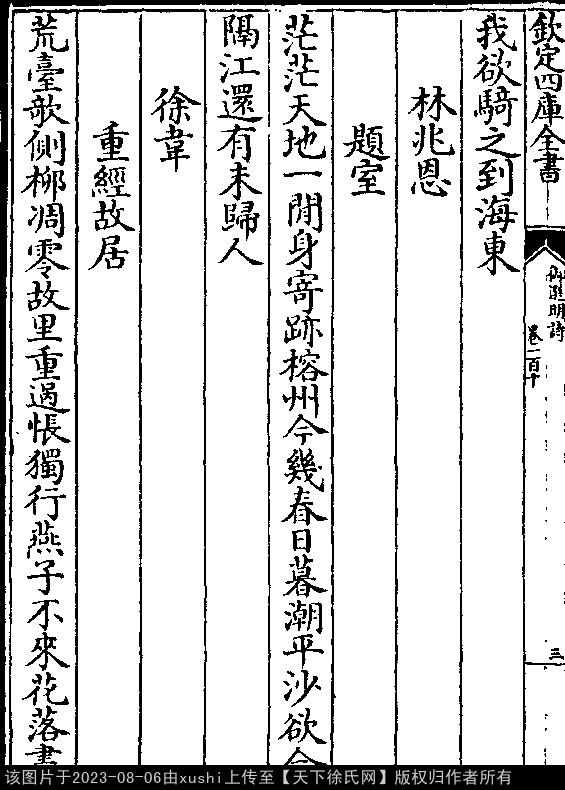 欽定四庫全書
御選明詩
卷一百十
三
我欲騎之到海東
林兆恩
題室
茫茫天地一閒身寄跡榕州今幾春日暮潮平沙欲
隔江還有未歸人
徐韋
重經故居
荒臺欹側柳凋零故里重過悵獨行燕子不來花落
该图片于2023-08-06由xushi上传至【天下徐氏网】版权归作者所有